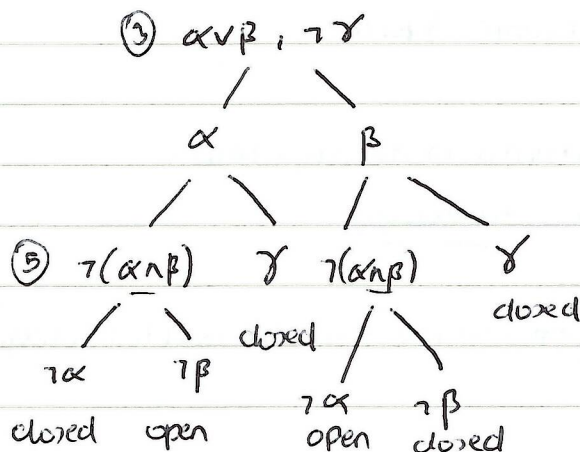 ③ α∨β, ¬γ
α β
⑤ ¬(α∩β) γ ¬(α∩β) γ
closed
closed
¬α ¬β
¬α ¬β
closed open open closed